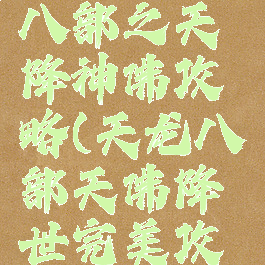 八部之天
降神佛攻
略(天龙八
部天佛降
世完美攻